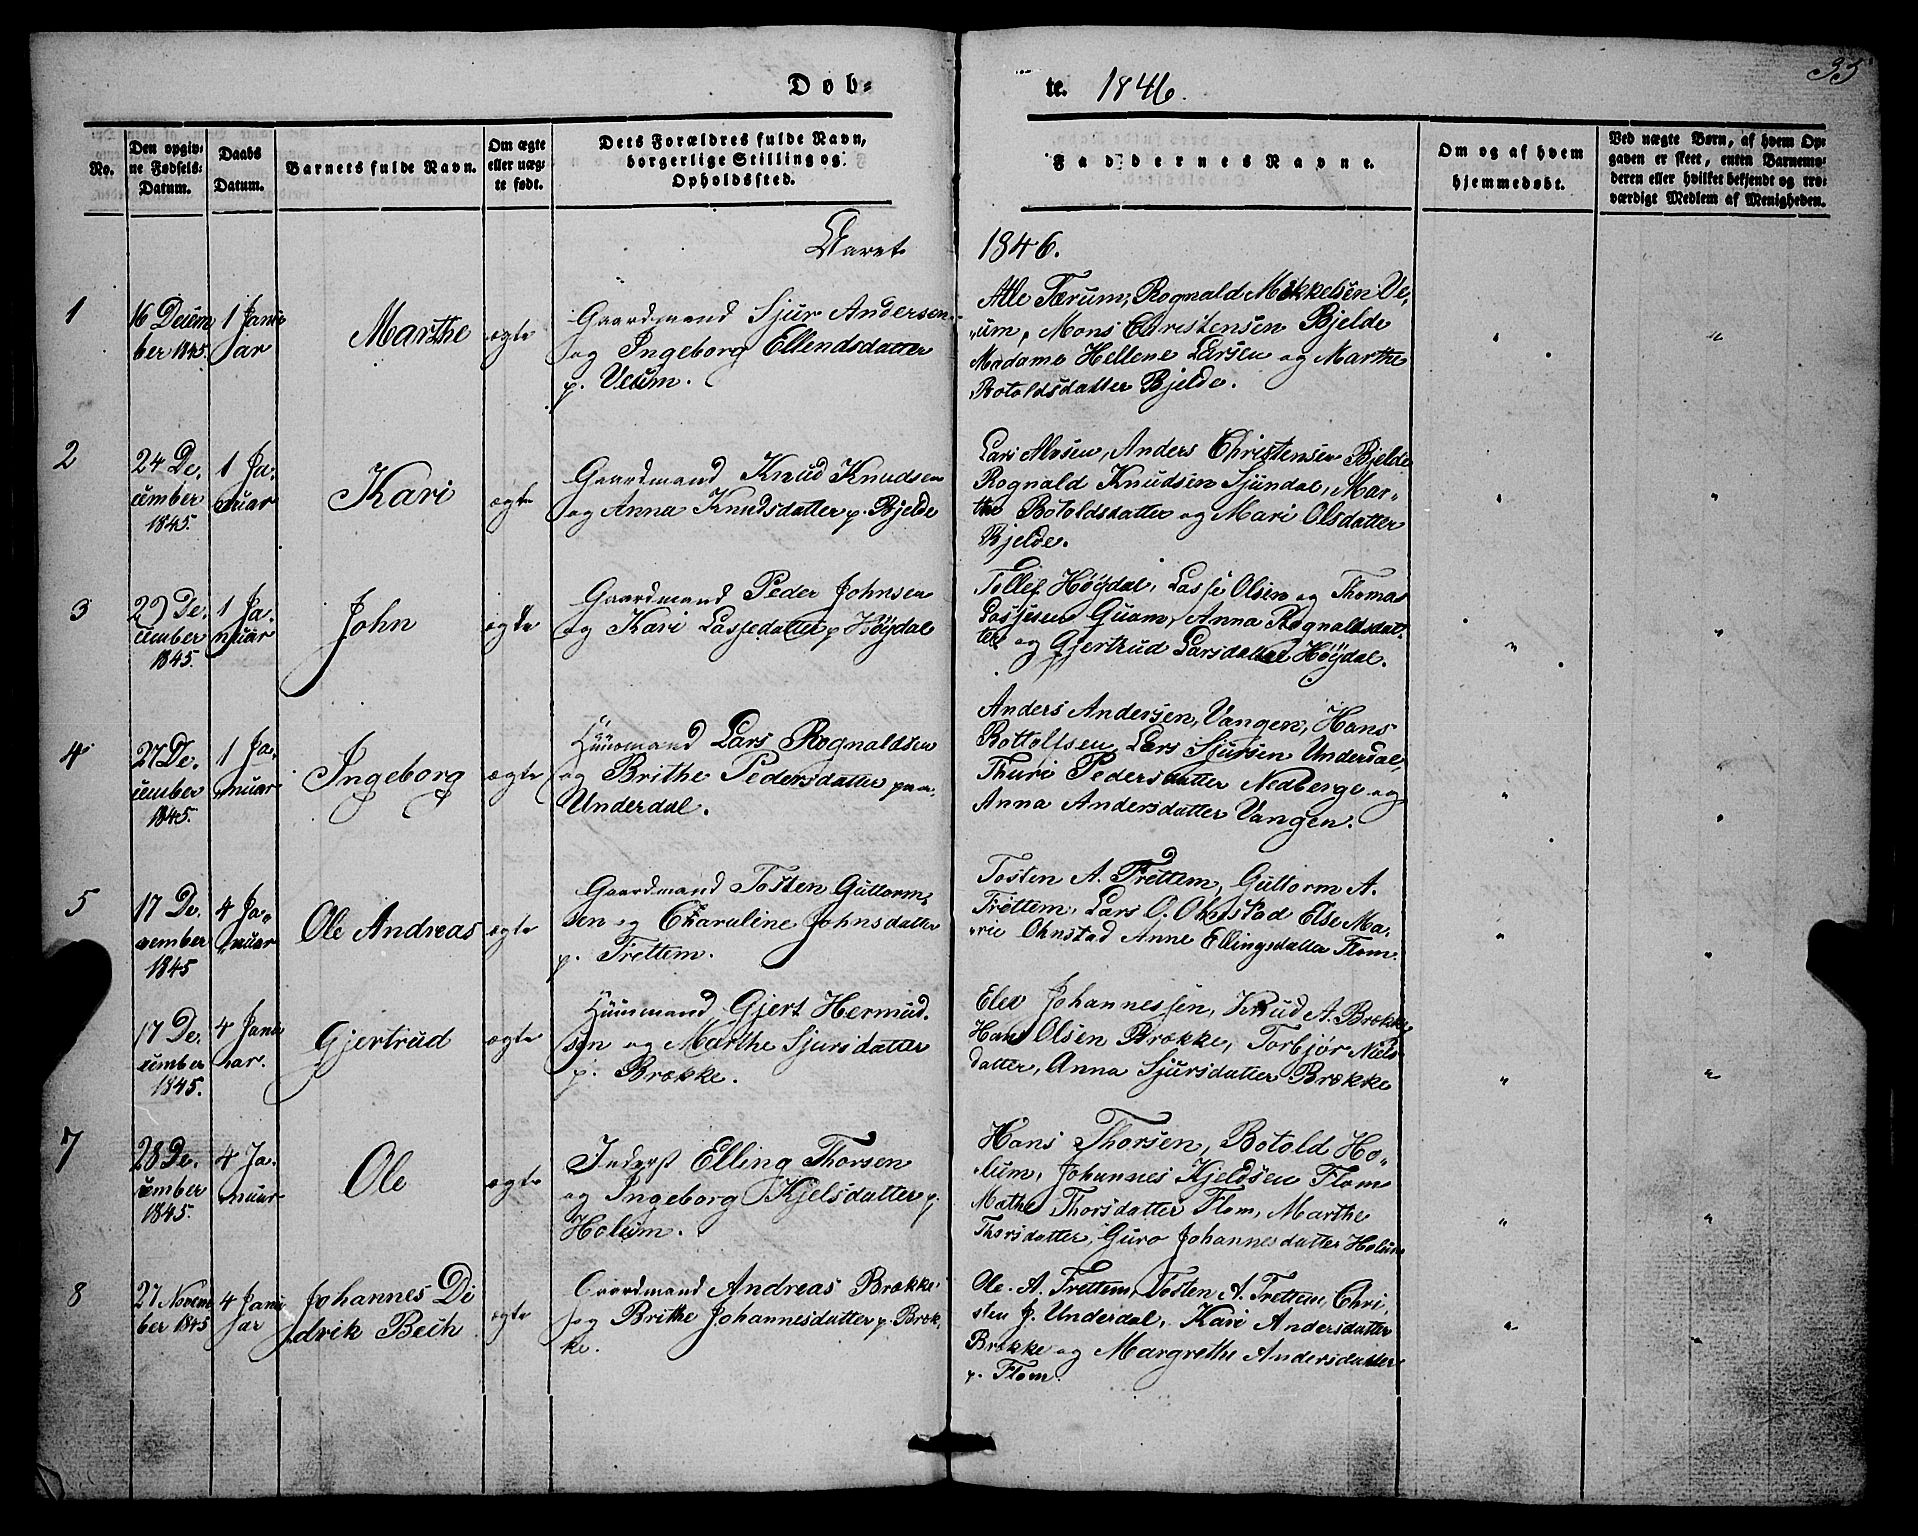 Døb-
te. 1846.
35
No.
Den opgiv-
ne Fødsels-
Datum.
Daabs
Datum.
Barnets fulde Navn.
Om ægte
eller uæg-
te født.
Dets Forældres fulde Navn,
borgerlige Stilling og
Opholdssted.
Faddernes Navne.
Om og af hvem
hjemmedøbt.
Ved uægte Børn, af hvem Op-
gaven er skeet, enten Barnemo-
deren eller hvilket bekjendt og tro-
værdigt Medlem af Menigheden.
Aaret
1846.
1
16 Decem
ber 1845.
1 Janu
ar
Marthe
ægte
Gaardmand Sjur Andersen
og Ingeborg Ellendsdatter
p. Veum.
Atle Tærum, Rognald Mikkelsen Ve,
um, Mons Christensen Bjelde
Madame Hellene Larsen og Marthe
Botoldsdatter Bjelde.
2
24 De,
cember
1845.
1 Ja,
nuar
Kari
ægte
Gaardmand Knud Knudsen
og Anna Knudsdatter p. Bjelde
Lars Anders Christensen Bjelde
Rognald Knudsen Sjündal, Mar-
the Botoldsdatter og Mari Olsdatter
Bjelde.
3
29 De,
cember
1845.
1 Ja,
nuar
John
ægte
Gaardmand Peder Johnsen
og Kari Lassedatter p Høydal
Tollef Høydal, Lasse Olsen og Thomas
Lassesen Quam, Anna Rognaldsdat-
ter og Gjertrud Larsdatter Høydal.
4
27 De,
cember
1845.
1 Ja,
nuar
Ingeborg
ægte
Huusmand Lars Rognaldsen
og Brithe Pedersdatter paa
Underdal.
Anders Andersen, Vangen, Hans
Bottolfsen, Lars Sjursen Underdal,
Thuri Pedersdatter Nedberge og
Anna Andersdatter Vangen.
5
17 De,
cember
1845
4 Ja,
nuar
Ole Andreas
ægte
Gaardmand Tosten Guttorm,
sen og Charuline Johnsdatter
p. Frettem.
Tosten A. Frettem, Guttorm A.
Frettem, Lars O. Ohnstad Else Ma,
rie Ohnstad Anne Ellingsdatter Flom.
17 De,
cember
1845.
4 Janu
uar.
Gjertrud
ægte
Huusmand Gjert Hermud,
sen og Marthe Sjursdatter
p. Brække.
Elev Johannessen, Knud A. Brække
Hans Olsen Brække, Torbjør Niels
datter, Anna Sjursdatter Brække
7
28 De,
cember
1845.
4 Ja,
nuar
Ole
ægte
Inderst Elling Thorsen
og Ingeborg Kjelsdatter p.
Holum.
Hans Thorsen, Botold Ho,
lum, Johannes Kjeldsen Flom
Mæthe Thorsdatter Flom, Marthe
Thorsdatter, Guro Johannesdatter Holum
8
27 Novem
ber 1845
4 Janu
ar
Johannes Di
drik Bech
ægte
Gaardmand Andreas Brække
og Brithe Johannesdatter p. Bræk,
ke.
Ole A. Frettem, Tosten A. Frettem, Chri,
sten J. Underdal, Kari Andersdatter
Brække og Margrethe Andersdatter
p. Flom.